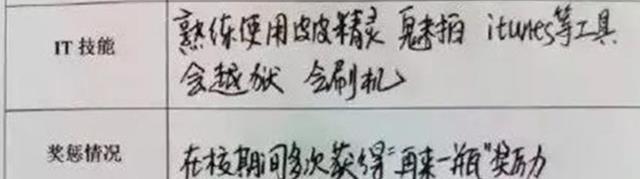 IT 技能
熟练使用皮皮精灵 魅拍 itunes等工具
会越狱 会刷机
奖惩情况
在校期间多次获得“再来一瓶”奖励